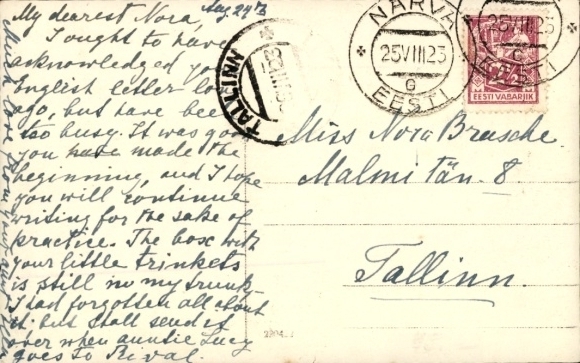 Aug. 24th
My dearest Nora,
I ought to have
acknowledged your
English letter long
ago, but have been
too busy. It was good
you have made the
beginning, and I hope
you will continue
writing for the sake of
practice. The box with
your little trinkets
is still in my trunk,
I had forgotten all about
it, but shall send it
over when auntie Lucy
goes to Reval.
Much love from your
TALLINN
NARVA
25 VIII 23
G
EESTI
NARVA
25 VIII 23
G
EESTI
EESTI VABARIIK
Miss Nora Brasche.
Malmi tän. 8
Tallinn.